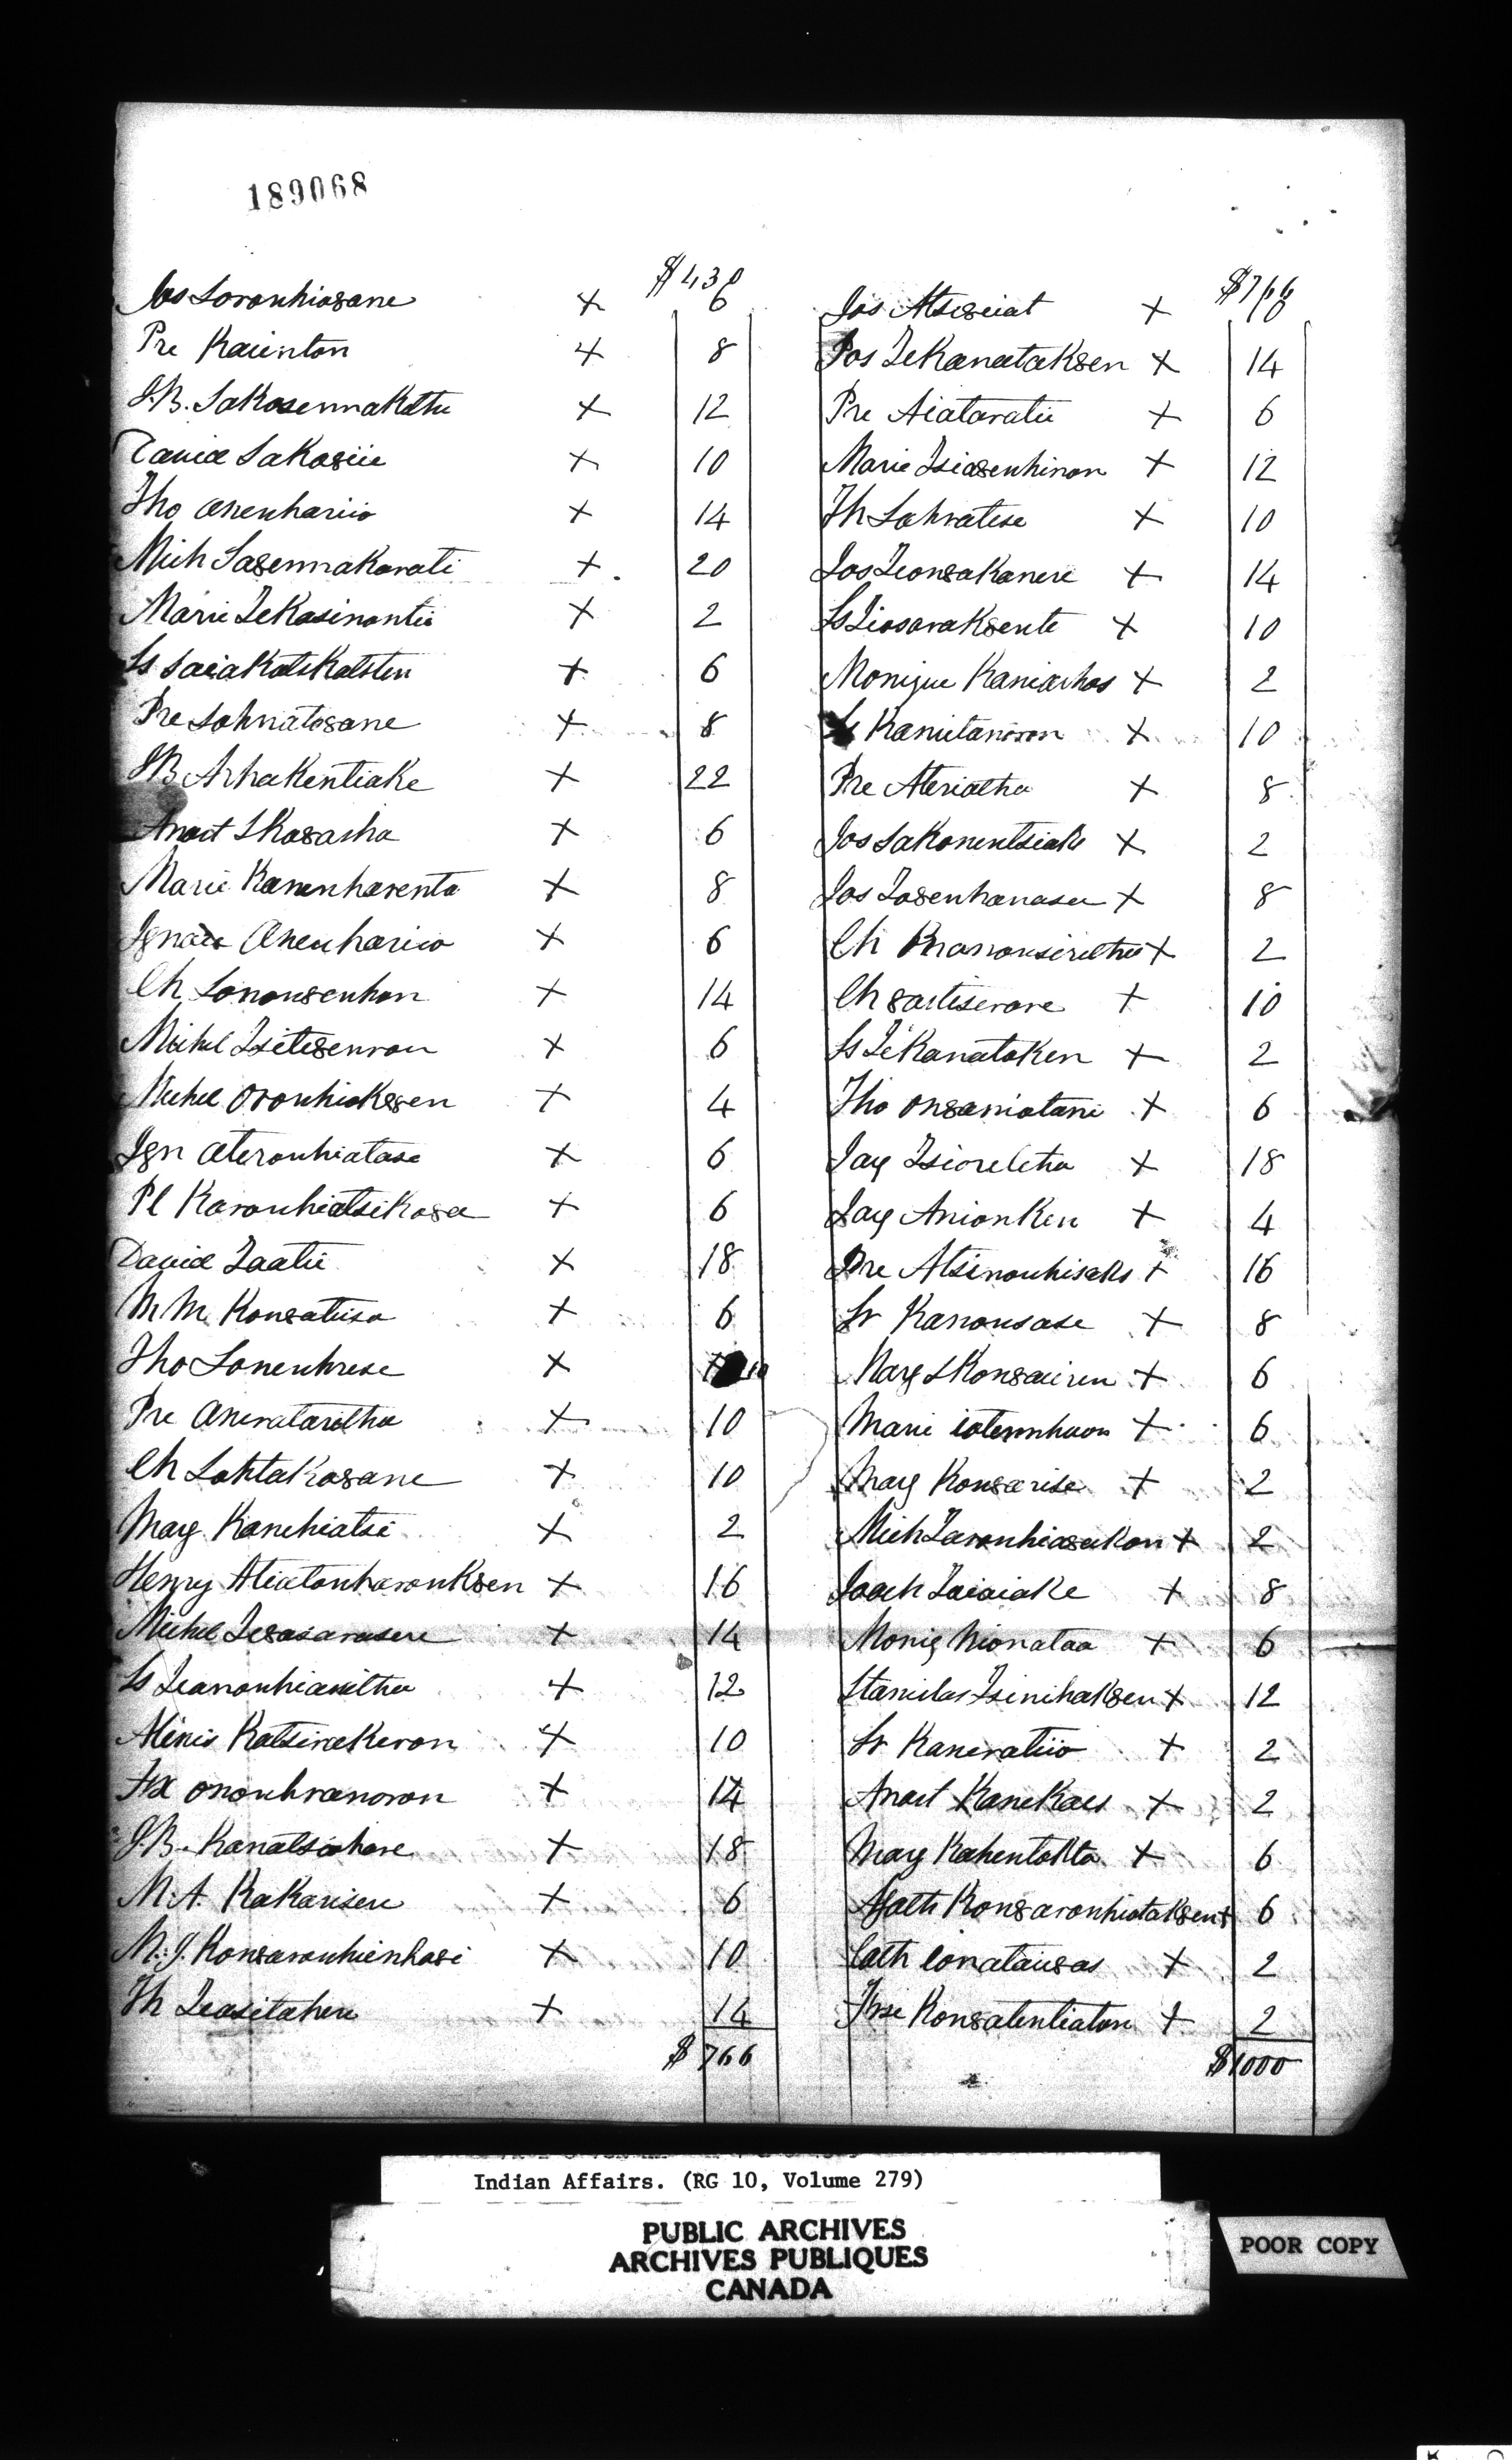 189068
$430
Jos Soronhiogane + 6
Pre Kaienton + 8
J.B. Sakosennakthe + 12
David Sakosiie + 10
Tho Anenhariio + 14
Mich Sa8ennakarati + 20
Marie Tekasinontie + 2
Ls Saiakatskatsten + 6
Pre Sohnatogane + 8
JB Arhakentiake + 22
Anast Skasasha + 6
Marie Kanenharenta + 8
Ignace Anenhariio + 6
Ch Sonon8enhon + 14
Michel Tsite8enron + 6
Michel Oronhiak8en + 4
Ign Ateronhiatase + 6
Pl Karonhiatsikosa + 6
David Taatie + 18
M M. Kon8atiiso + 6
Tho Sonenhrese + 10
Pre Anerataritha + 10
Ch Sohtakogane + 10
Marg Kanehiatsi + 2
Henry Atiatonharonk8en + 16
Michel Te8asarasere + 14
Ls Teanonhianitha + 12
Alexis Katsirakeron + 10
Fx Ononhranoron + 14
J.B. Kanatsiohare + 18
M.A. Kakarisere + 6
M.J. Kon8aronhienha8i + 10
Th Teasitahere + 14
$766
$766
Jos Atse8eiat + 10
Jos Tekanatak8en + 14
Pre Aiataratie + 6
Marie Tsia8enhinon + 12
Th Sohratese + 10
Jos Teon8akanere + 14
Ls Tiosarak8ente + 10
Monique Kaniashas + 2
Ls Kanitanoron + 10
Pre Ateriatha + 8
Jos Sakonentsiaks + 2
Jos Tosenhanasa + 8
Ch Kanonsiretha + 2
Ch Sastiserore + 10
Ls Tekanatoken + 2
Tho On8aniotani + 6
Jaq Tsioreletha + 18
Jaq Anionken + 4
Pre Atsinonhisaks + 16
Sr Kanonsase + 8
Marg Skon8aiiren + 6
Marie iotennhaon + 6
Marg Kon8arise + 2
Mich Taronhia8akon + 2
Joach Taiaiake + 8
Moniq Nionataa + 6
Stanislas Tsinihak8en + 12
Sr Kaneratiio + 2
Anast Kanekaes + 2
Marg Kahentokta + 6
Agath Kon8aronhiatak8en + 6
Cath Conatai8as + 2
Thrse Kon8atentiaton + 2
$1000
Indian Affairs. (RG 10, Volume 279)
PUBLIC ARCHIVES
ARCHIVES PUBLIQUES
CANADA
POOR COPY